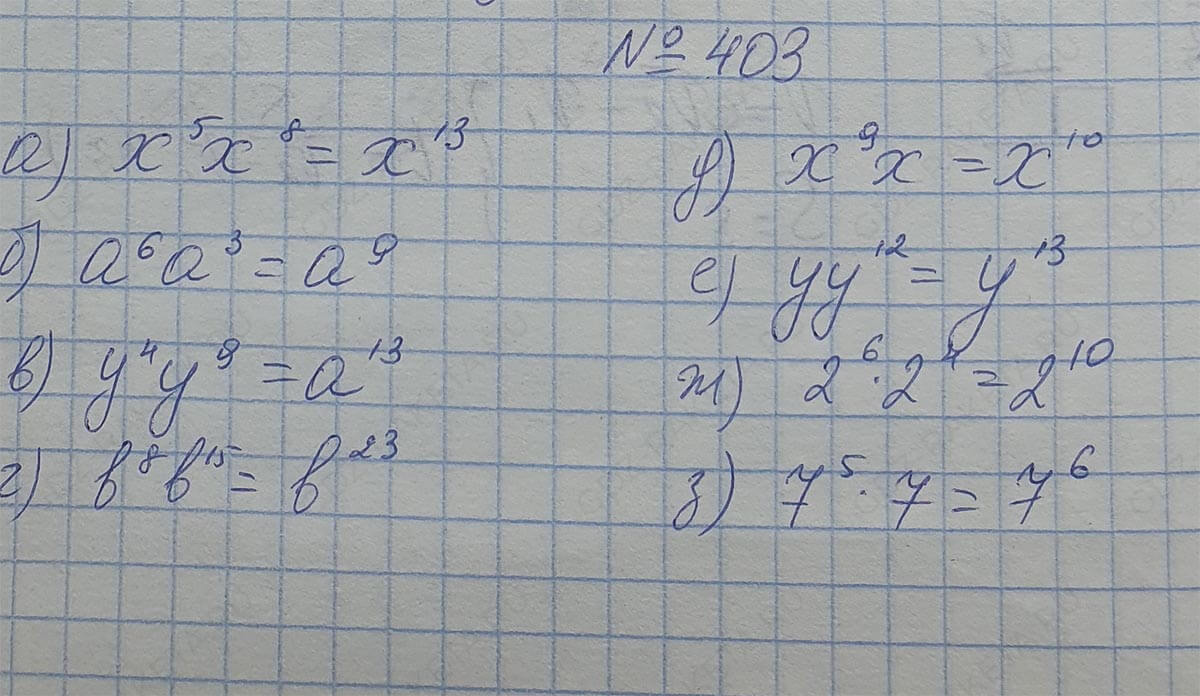 № 403
а) x⁵x⁸ = x¹³
б) a⁶a³ = a⁹
в) y⁴y⁹ = a¹³
г) b⁸b¹⁵ = b²³
д) x⁹x = x¹⁰
е) yy¹² = y¹³
ж) 2⁶·2⁴ = 2¹⁰
з) 7⁵·7 = 7⁶